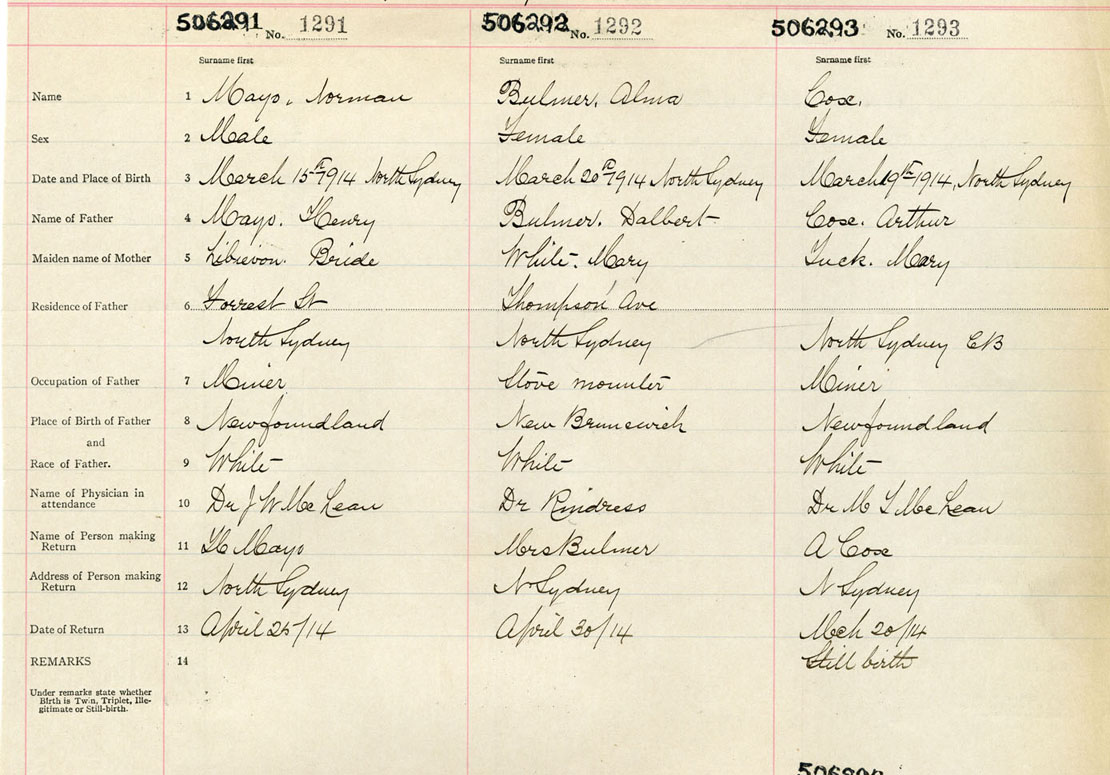 506291 No. 1291 506292 No. 1292 506293 No. 1293
Surname first Surname first Surname first
Name 1 Mayo, Norman Bulmer, Alma Cose.
Sex 2 Male Female Female
Date and Place of Birth 3 March 15th 1914 North Sydney March 20th 1914 North Sydney March 19th 1914, North Sydney
Name of Father 4 Mayo. Henry Bulmer. Dalbert Cose. Arthur
Maiden name of Mother 5 Bride White. Mary Tuck. Mary
Residence of Father 6 Forrest St Thompson Ave
North Sydney North Sydney North Sydney CB
Occupation of Father 7 Miner Stove mounter Miner
Place of Birth of Father 8 Newfoundland New Brunswick Newfoundland
and
Race of Father. 9 White White White
Name of Physician in
attendance 10 Dr J W McLean Dr Rindress Dr M T McLean
Name of Person making
Return 11 H Mayo Mrs Bulmer A Cose
Address of Person making
Return 12 North Sydney N Sydney N Sydney
Date of Return 13 April 25/14 April 30/14 Mch 20/14
REMARKS 14 Still birth
Under remarks state whether
Birth is Twin, Triplet, Ille-
gitimate or Still-birth.